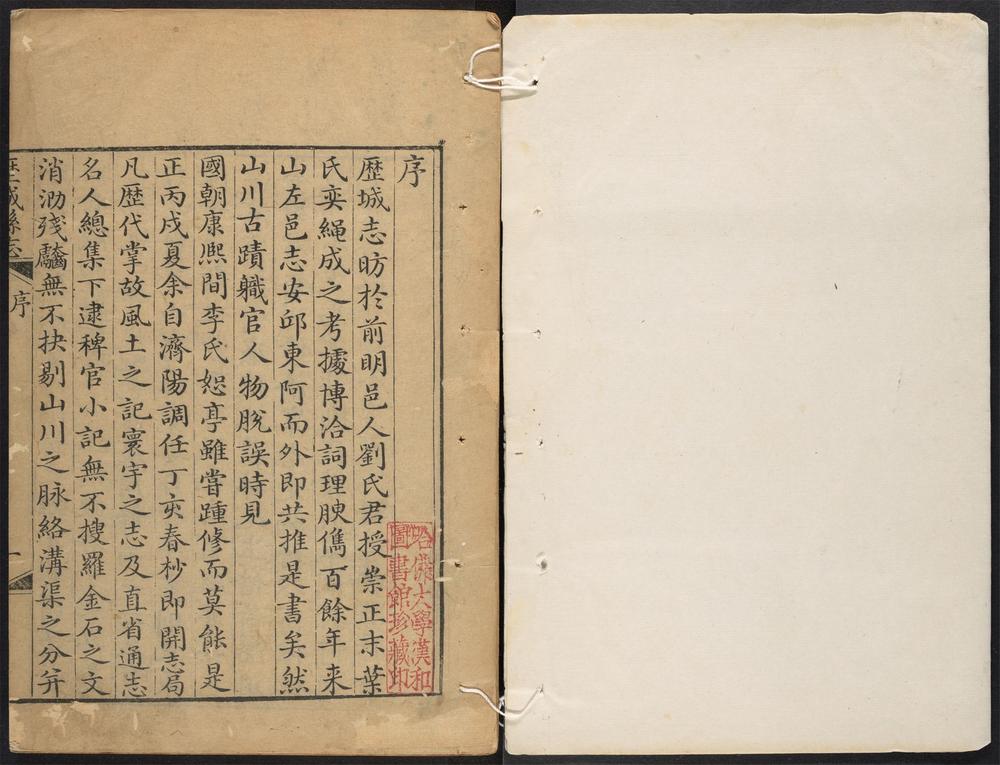 序
歷城志昉於前明邑人劉氏君授崇正末葉
氏奕繩成之考據博洽詞理腴儁百餘年来
山左邑志安邱東阿而外即共推是書矣然
山川古蹟職官人物脫誤時見
國朝康熙間李氏恕亭雖嘗踵修而莫能是
正丙戌夏余自濟陽調任丁亥春杪即開志局
凡歷代掌故風土之記寰宇之志及直省通志
名人總集下逮稗官小記無不搜羅金石之文
消泐殘齾無不抉剔山川之脉絡溝渠之分并
歷城縣志
序
一
哈佛大學漢和
圖書館珍藏印